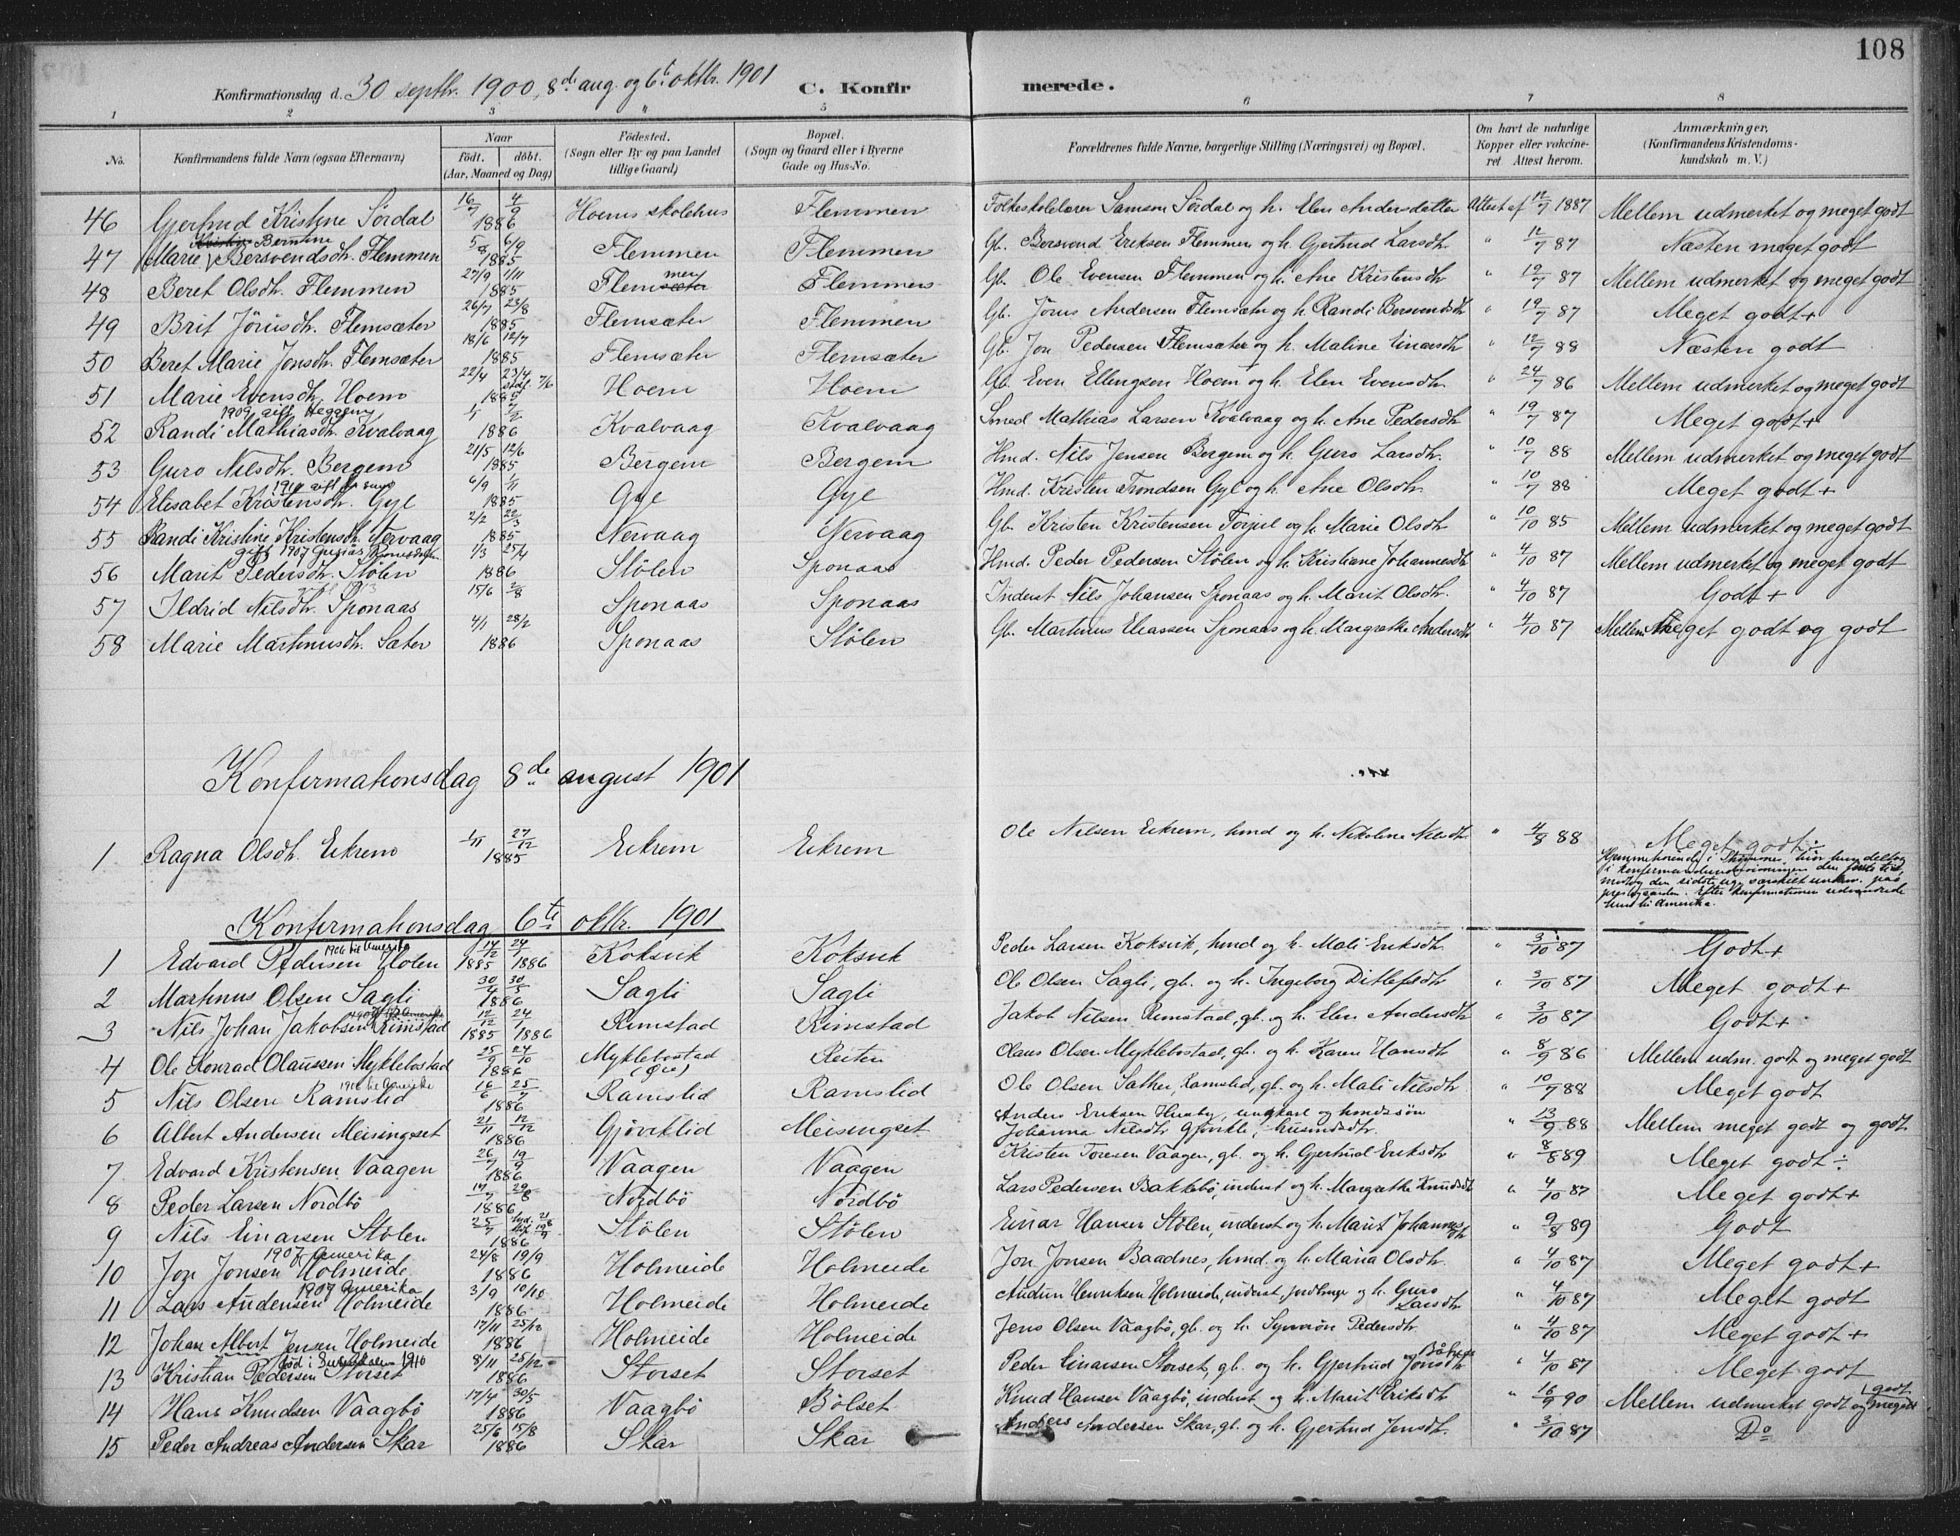 108
Konfirmationsdag d. 30 septbr. 1900, 8de aug. og 6te oktbr. 1901 C. Konfirmerede.
1 2 3 4 5 6 7 8
No. Konfirmandens fulde Navn (ogsaa Efternavn) Naar født. døbt. (Aar, Maaned og Dag) Fødested. (Sogn eller By og paa Landet tillige Gaard) Bopæl. (Sogn og Gaard eller i Byerne Gade og Hus-No. Forældrenes fulde Navne, borgerlige Stilling (Næringsvei) og Bopæl. Om havt de naturlige Kopper eller vakcineret Attest herom. Anmærkninger, (Konfirmandens Kristendomskundskab m. V.)
46 Gjertrud Kristine Sördal 16/7 4/9 1886 Hoems skolehus Flemmen Folkeskolelærer Samson Sördal og h. Elen Andersdatter Attest af 12/7 1887 Mellem udmerket og meget godt
47 Marie Berntine Bersvendsdh. Flemmen 5/8 6/9 1885 Flemmen Flemmen Gb. Bersvend Eriksen Flemmen og h. Gjertrud Larsdh. " 12/7 87 Næsten meget godt
48 Beret Olsdh. Flemmen 27/9 1/11 1885 Flemmen Flemmen Gb. Ole Evensen Flemmen og h. Ane Kristensdh " 12/7 87 Mellem udmerket og meget godt
49 Brit Jörusdh. Flemsæter 26/7 23/8 1885 Flemsæter Flemmen Gb. Jörus Andersen Flemsæter og h. Randi Bersvendsdh " 19/7 87 Meget godt+
50 Beret Marie Jonsdh. Flemsæter 18/6 12/7 1885 Flemsæter Flemsæter Gb. Jon Pedersen Flemsæter og h. Maline Einarsdh " 12/7 88 Næsten godt
51 Marie Evensdh. Hoem 22/4 23/4 stadf. 7/6 1885 Hoem Hoem Gb. Even Ellingsen Hoem og h. Elen Evensdh. " 24/7 86 Mellem udmerket og meget godt
1909 gift Heggem
52 Randi Mathiasdh. Kvalvaag 1886 Kvalvaag Kvalvaag Smed Mathias Larsen Kvalvaag og h. Ane Pedersdh " 19/7 87 Meget godt+
53 Guro Nilsdh. Bergem 21/5 12/6 1885 Bergem Bergem Hmd. Nils Jensen Bergem og h. Guro Larsdh. " 10/7 88 Mellem udmerket og meget godt
54 Elisabet Kristensdh. Gyl 6/9 1/11 1885 Gyl Gyl Hmd. Kristen Trondsen Gyl og h. Ane Olsdh. " 10/7 88 Meget godt+
55 Randi Kristine Kristensdh. Nervaag 2/2 22/3 1885 Nervaag Nervaag Gb. Kristen Kristensen Torjul og h. Marie Olsdh. " 10/10 85 Mellem udmerket og meget godt
gift 1907
56 Marit Pedersdh. Stølen 1/3 25/4 1886 Stølen Sponaas Hmd. Peder Pedersen Stølen og h. Kristiane Johannesdh " 4/10 87 Mellem udmerket og meget godt
57 Ildrid Nilsdh. Sponaas 15/6 2/8 Sponaas Sponaas Inderst Nils Johansen Sponaas og h. Marit Olsdh. " 4/10 87 Godt+
58 Marie Martinusdh. Sæter 4/1 28/2 1886 Sponaas Stølen Gb. Martinus Eliassen Sponaas og h. Margrethe Andersdh " 4/10 87 Mellem Meget godt og godt
Konfirmationsdag 8de august 1901
1 Ragna Olsdh. Eikrem 1/11 27/12 1885 Eikrem Eikrem Ole Nilsen Eikrem, hmd og h. Nikoline Nilsdh " 4/8 88 Meget godt÷
Hjemmehørende i hvor hun deltog
i konfirmandundervisningen den første tid,
modtog den sidste ug. særskilt underv. paa
prestegaarden. Efter konfirmationen udvandrede
hun til Amerika.
Konfirmationsdag 6te oktbr. 1901
1906 til Amerika
1 Edvard Pedersen Holen 14/12 1885 24/1 1886 Koksvik Koksvik Peder Larsen Koksvik, hmd og h. Mali Eriksdh " 3/10 87 Godt+
2 Martinus Olsen Sagli 30/4 30/5 1886 Sagli Sagli Ole Olsen Sagli, gb. og h. Ingeborg Ditlefsdh " 3/10 87 Meget godt+
1907 til Amerika
3 Nils Johan Jakobsen Rimstad 12/12 1885 24/1 1886 Rimstad Rimstad Jakob Nilsen Rimstad, gb. og h. Elen Andersdh " 3/10 87 Godt+
4 Ole Konrad Olaussen Myklebostad 25/9 24/10 1886 Myklebostad (Øre) Reiten Olaus Olsen Myklebostad, gb. og h. Karen Hansdh " 8/9 86 Mellem udm. godt og meget godt
1906 til Amerika
5 Nils Olsen Ramslid 16/6 25/7 1886 Ramslid Ramslid Ole Olsen Sather, Ramslid, gb. og h. Mali Nilsdh " 10/7 88 Meget godt
6 Albert Andersen Meisingset 21/11 12/12 1886 Gjöviklid Meisingset Anders Eriksen Husby, ungkarl og hmdssön
Johanna Nilsdh Gjövikli, husmdsdh " 13/9 88 Mellem meget godt og godt
7 Edvard Kristensen Vaagen 26/7 19/9 1886 Vaagen Vaagen Kristen Toresen Vaagen, gb. og h. Gjertrud Eriksdh " 8/8 89 Meget godt÷
8 Peder Larsen Nordbö 17/7 29/8 1886 Nordbö Nordbö Lars Pedersen Bakkebö, inderst og h. Margrethe Knudsdt " 4/10 87 Meget godt+
9 Nils Einarsen Stölen 25/7 1886 Stölen Stölen Einar Hansen Stölen, inderst og h. Marit Johannesdh " 9/8 89 Godt
1907 Amerika
10 Jon Jonsen Holmeide 24/8 19/9 1886 Holmeide Holmeide Jon Jonsen Baadnes, hmd. og h. Maria Olsdh " 4/10 87 Meget godt+
1907 Amerika
11 Lars Audensen Holmeide 3/9 10/10 1886 Holmeide Holmeide Audun Henriksen Holmeide, inderst og h. Guro Larsdh " 4/10 87 Meget godt
12 Johan Albert Jensen Holmeide 17/11 25/12 1886 Holmeide Holmeide Jens Olsen Vaagbö, gb. og h. Synnøn Pedersdh. " 4/10 87 Meget godt+
13 Kristian Pedersen Storset 8/11 25/12 1886 Storset Storset Peder Einarsen Storset, gb. og h. Gjertrud Jonsdh " 4/10 87 Meget godt
14 Hans Knudsen Vaagbö 17/4 30/5 1886 Vaagbö Bölset Knud Hansen Vaagbö, inderst og h. Marit Eriksdh " 16/9 90 Mellem udmerket godt og meget godt
15 Peder Andreas Andersen Skar 25/6 15/8 1886 Skar Skar Anders Andersen Skar, gb. og h. Gjertrud Jensdh. " 3/10 87 Do